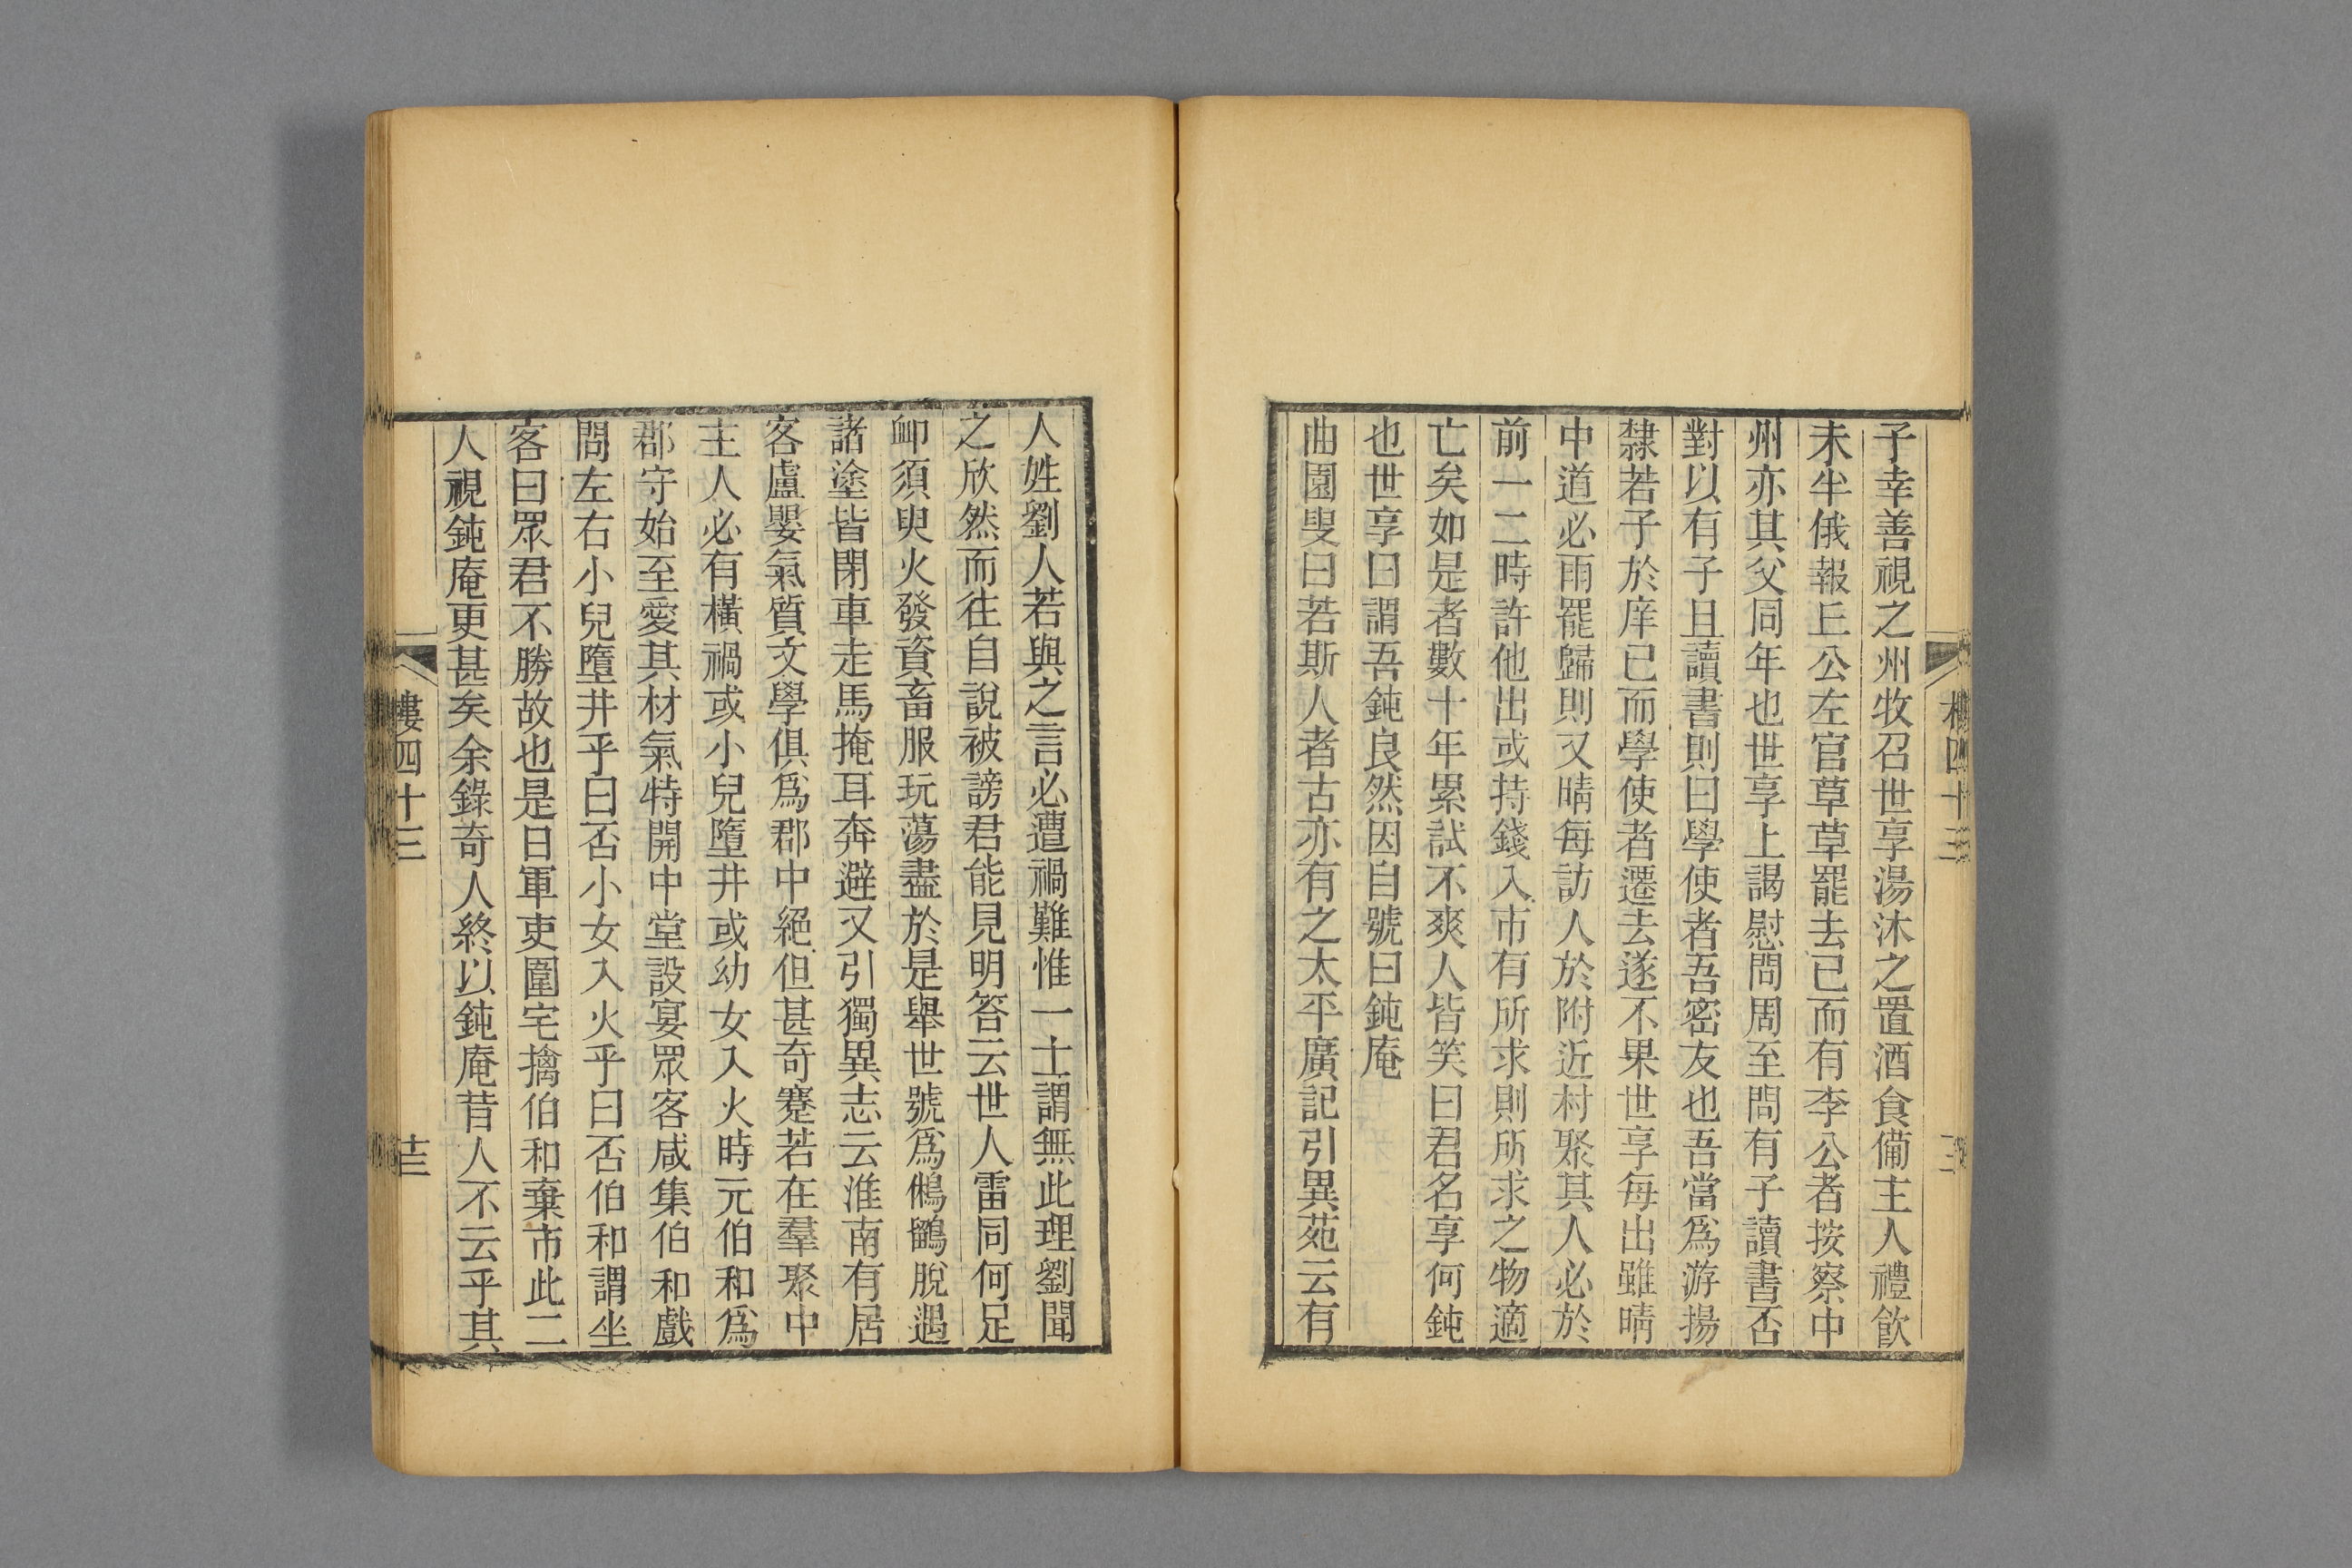 子幸善視之州牧召世享湯沐之置酒食備主人禮飮
未半俄報上公左官草草罷去已而有李公者按察中
州亦其父同年也世享上謁慰問周至問有子讀書否
對以有子且讀書則曰學使者吾密友也吾當爲游揚
隸若子於庠已而學使者遷去遂不果世享每出雖晴
中道必雨罷歸則又晴每訪人於附近村聚其人必於
前一二時許他出或持錢入市有所求則所求之物適
亡矣如是者數十年累試不爽人皆笑曰君名享何鈍
也世享曰謂吾鈍良然因自號曰鈍庵
曲園叟曰若斯人者古亦有之太平廣記引異苑云有
人姓劉人若與之言必遭禍難惟一士謂無此理劉聞
之欣然而往自說被謗君能見明答云世人雷同何足
卹須臾火發資畜服玩蕩盡於是舉世號爲鵂鶹脫遇
諸塗皆閉車走馬掩耳奔避又引獨異志云淮南有居
客盧嬰氣質文學俱爲郡中絕但甚奇蹇若在羣聚中
主人必有橫禍或小兒墮井或幼女入火時元伯和爲
郡守始至愛其材氣特開中堂設宴眾客咸集伯和戲
問左右小兒墮井乎曰否小女入火乎曰否伯和謂坐
客曰眾君不勝故也是日軍吏圍宅擒伯和棄市此二
人視鈍庵更甚矣余錄奇人終以鈍庵昔人不云乎其
樓四十三
十三